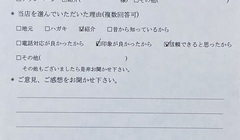 ●当店を選んでいただいた理由(複数回答可)
□地元 □ハガキ ☑紹介 □昔から知っているから
□電話対応が良かったから ☑印象が良かったから ☑信頼できると思ったから
□その他( )
その他もございましたら是非お聞かせ下さい。
●ご意見、ご感想をお聞かせ下さい。